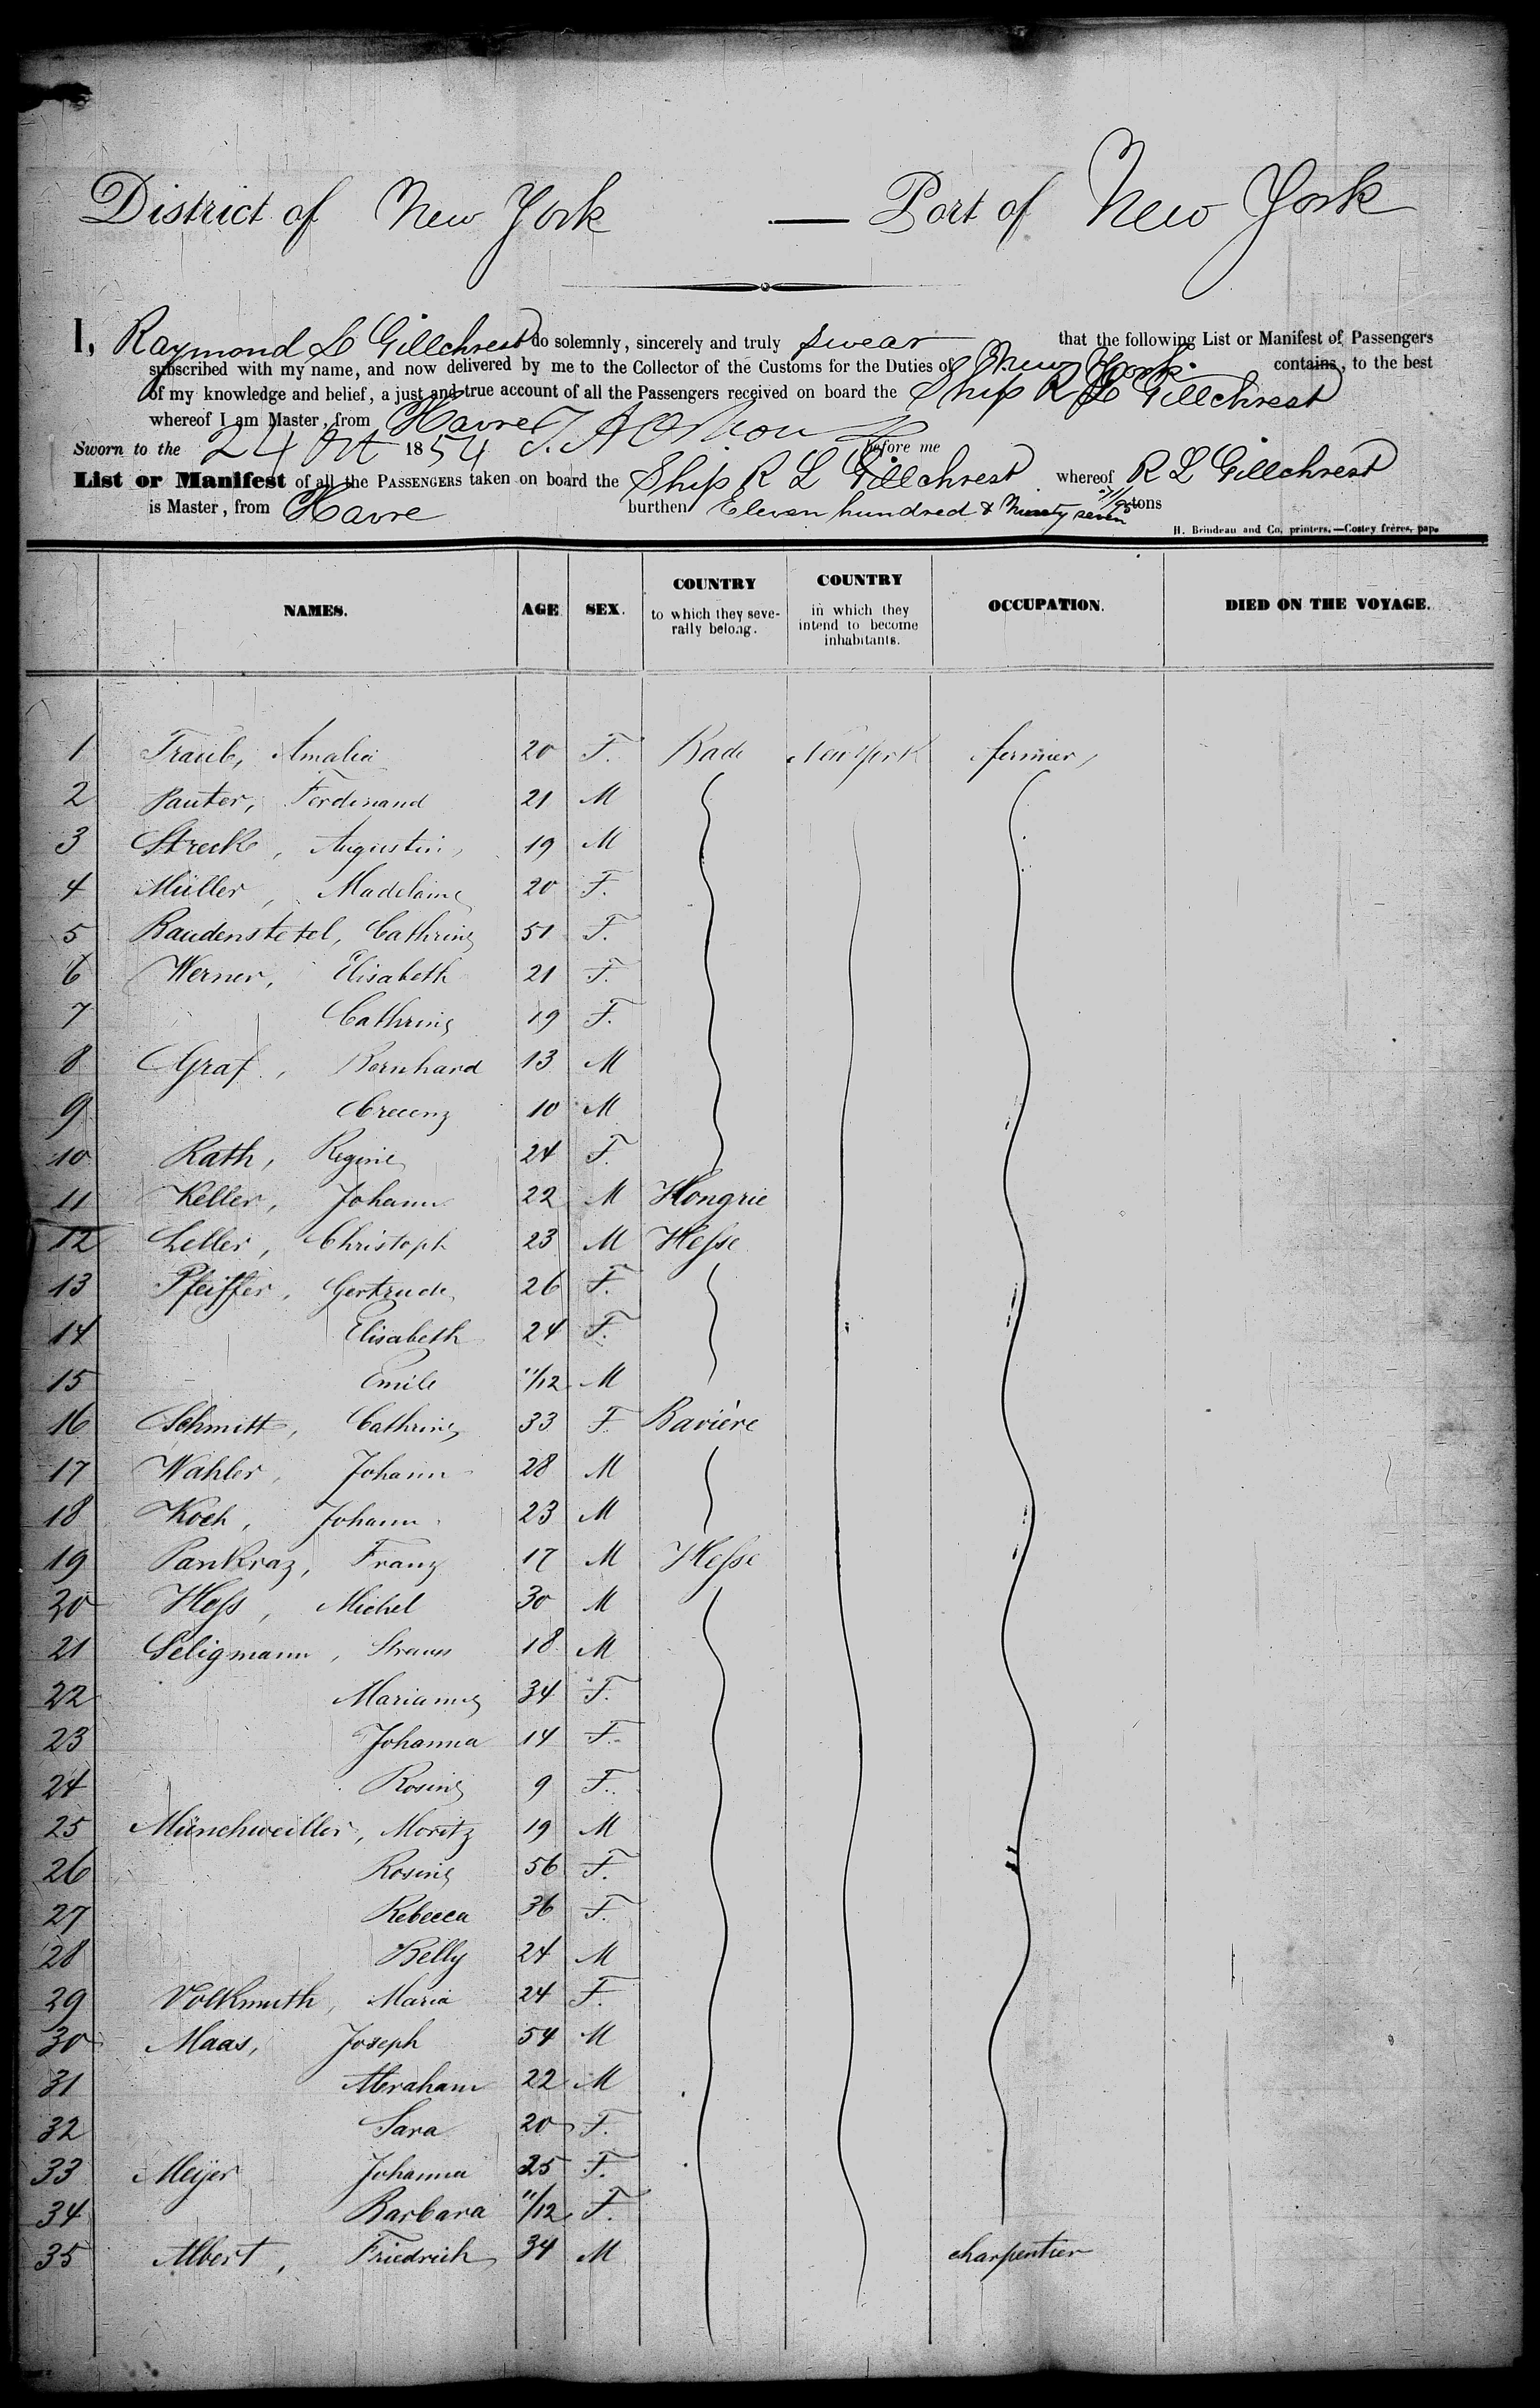 District of New York — Port of New York
I, Raymond L Gillchrest do solemnly, sincerely and truly swear that the following List or Manifest of Passengers
subscribed with my name, and now delivered by me to the Collector of the Customs for the Duties of New York contains, to the best
of my knowledge and belief, a just and true account of all the Passengers received on board the Ship R L Gillchrest
whereof I am Master, from Havre
Sworn to the 24 Oct 1854 before me
List or Manifest of all the PASSENGERS taken on board the Ship R L Gillchrest whereof R L Gillchrest
is Master, from Havre burthen Eleven hundred & Ninety seven tons
H. Brindeau and Co, printers.—Costey frères, pap.
NAMES. AGE SEX. COUNTRY to which they seve-rally belong. COUNTRY in which they intend to become inhabitants. OCCUPATION. DIED ON THE VOYAGE.
1 Traub, Amalia 20 F. Bade New York fermier
2 Pautor, Ferdinand 21 M
3 Streck, Augustin 19 M
4 Müller, Madelaine 20 F.
5 Baudenstetel, Cathrine 51 F.
6 Werner, Elisabeth 21 F.
7 Cathrine 19 F.
8 Graf, Bernhard 13 M
9 Crecenz 10 M
10 Rath, Regine 24 F.
11 Keller, Johann 22 M Hongrie
12 Leller, Christoph 23 M Hesse
13 Pfeiffer, Gertrude 26 F.
14 Elisabeth 24 F.
15 Emile 11/12 M
16 Schmitt, Cathrine 33 F Bavière
17 Wahler, Johann 28 M
18 Koch, Johann 23 M
19 Pankraz, Franz 17 M Hesse
20 Hess, Michel 30 M
21 Seligmann, Straus 18 M
22 Marianne 34 F.
23 Johanna 14 F.
24 Rosine 9 F.
25 Münchweiller, Moritz 19 M
26 Rosine 56 F.
27 Rebecca 36 F.
28 Belly 24 M
29 Volkmuth, Maria 24 F.
30 Maas, Joseph 54 M
31 Abraham 22 M
32 Sara 20 F.
33 Meijer Johanna 25 F.
34 Barbara 11/12 F.
35 Albert, Friedrich 34 M charpentier